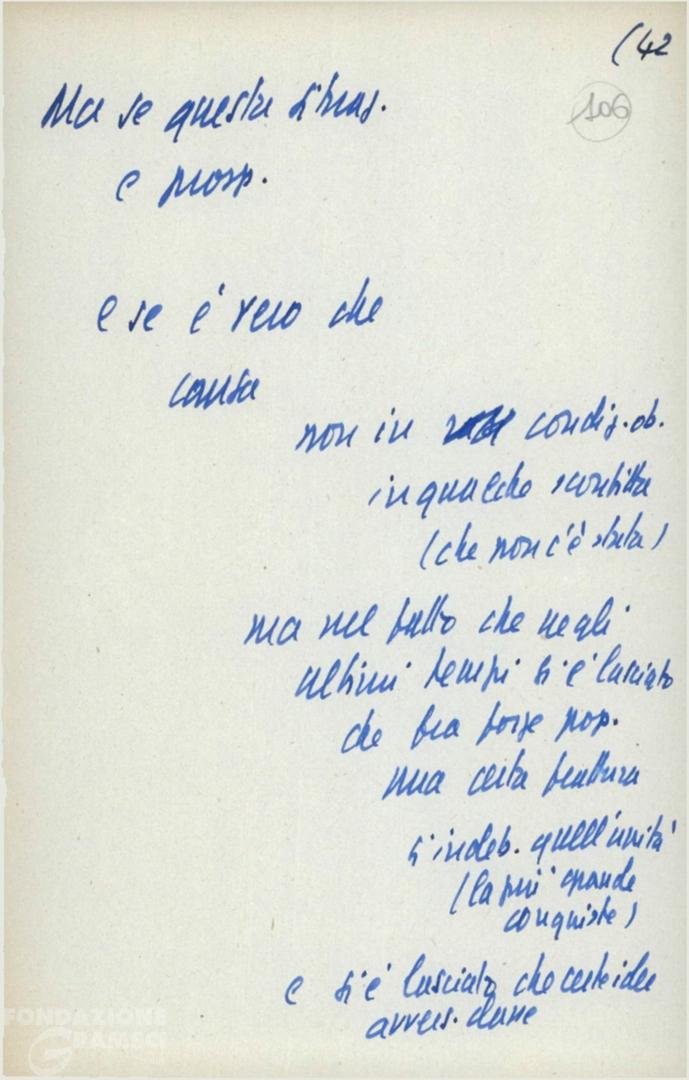 (42
106
Ma se questa situaz.
e prosp.
e se è vero che
causa
non in condiz. ob.
in qualche sconfitta
(che non c'è stata)
ma nel fatto che negli
ultimi tempi si è lasciato
che tra forze pop.
una certa
s'indeb. quell'unità
(la più grande
conquista)
e si è lasciato che certe idee
avvers. classe
FONDAZIONE
GRAMSCI